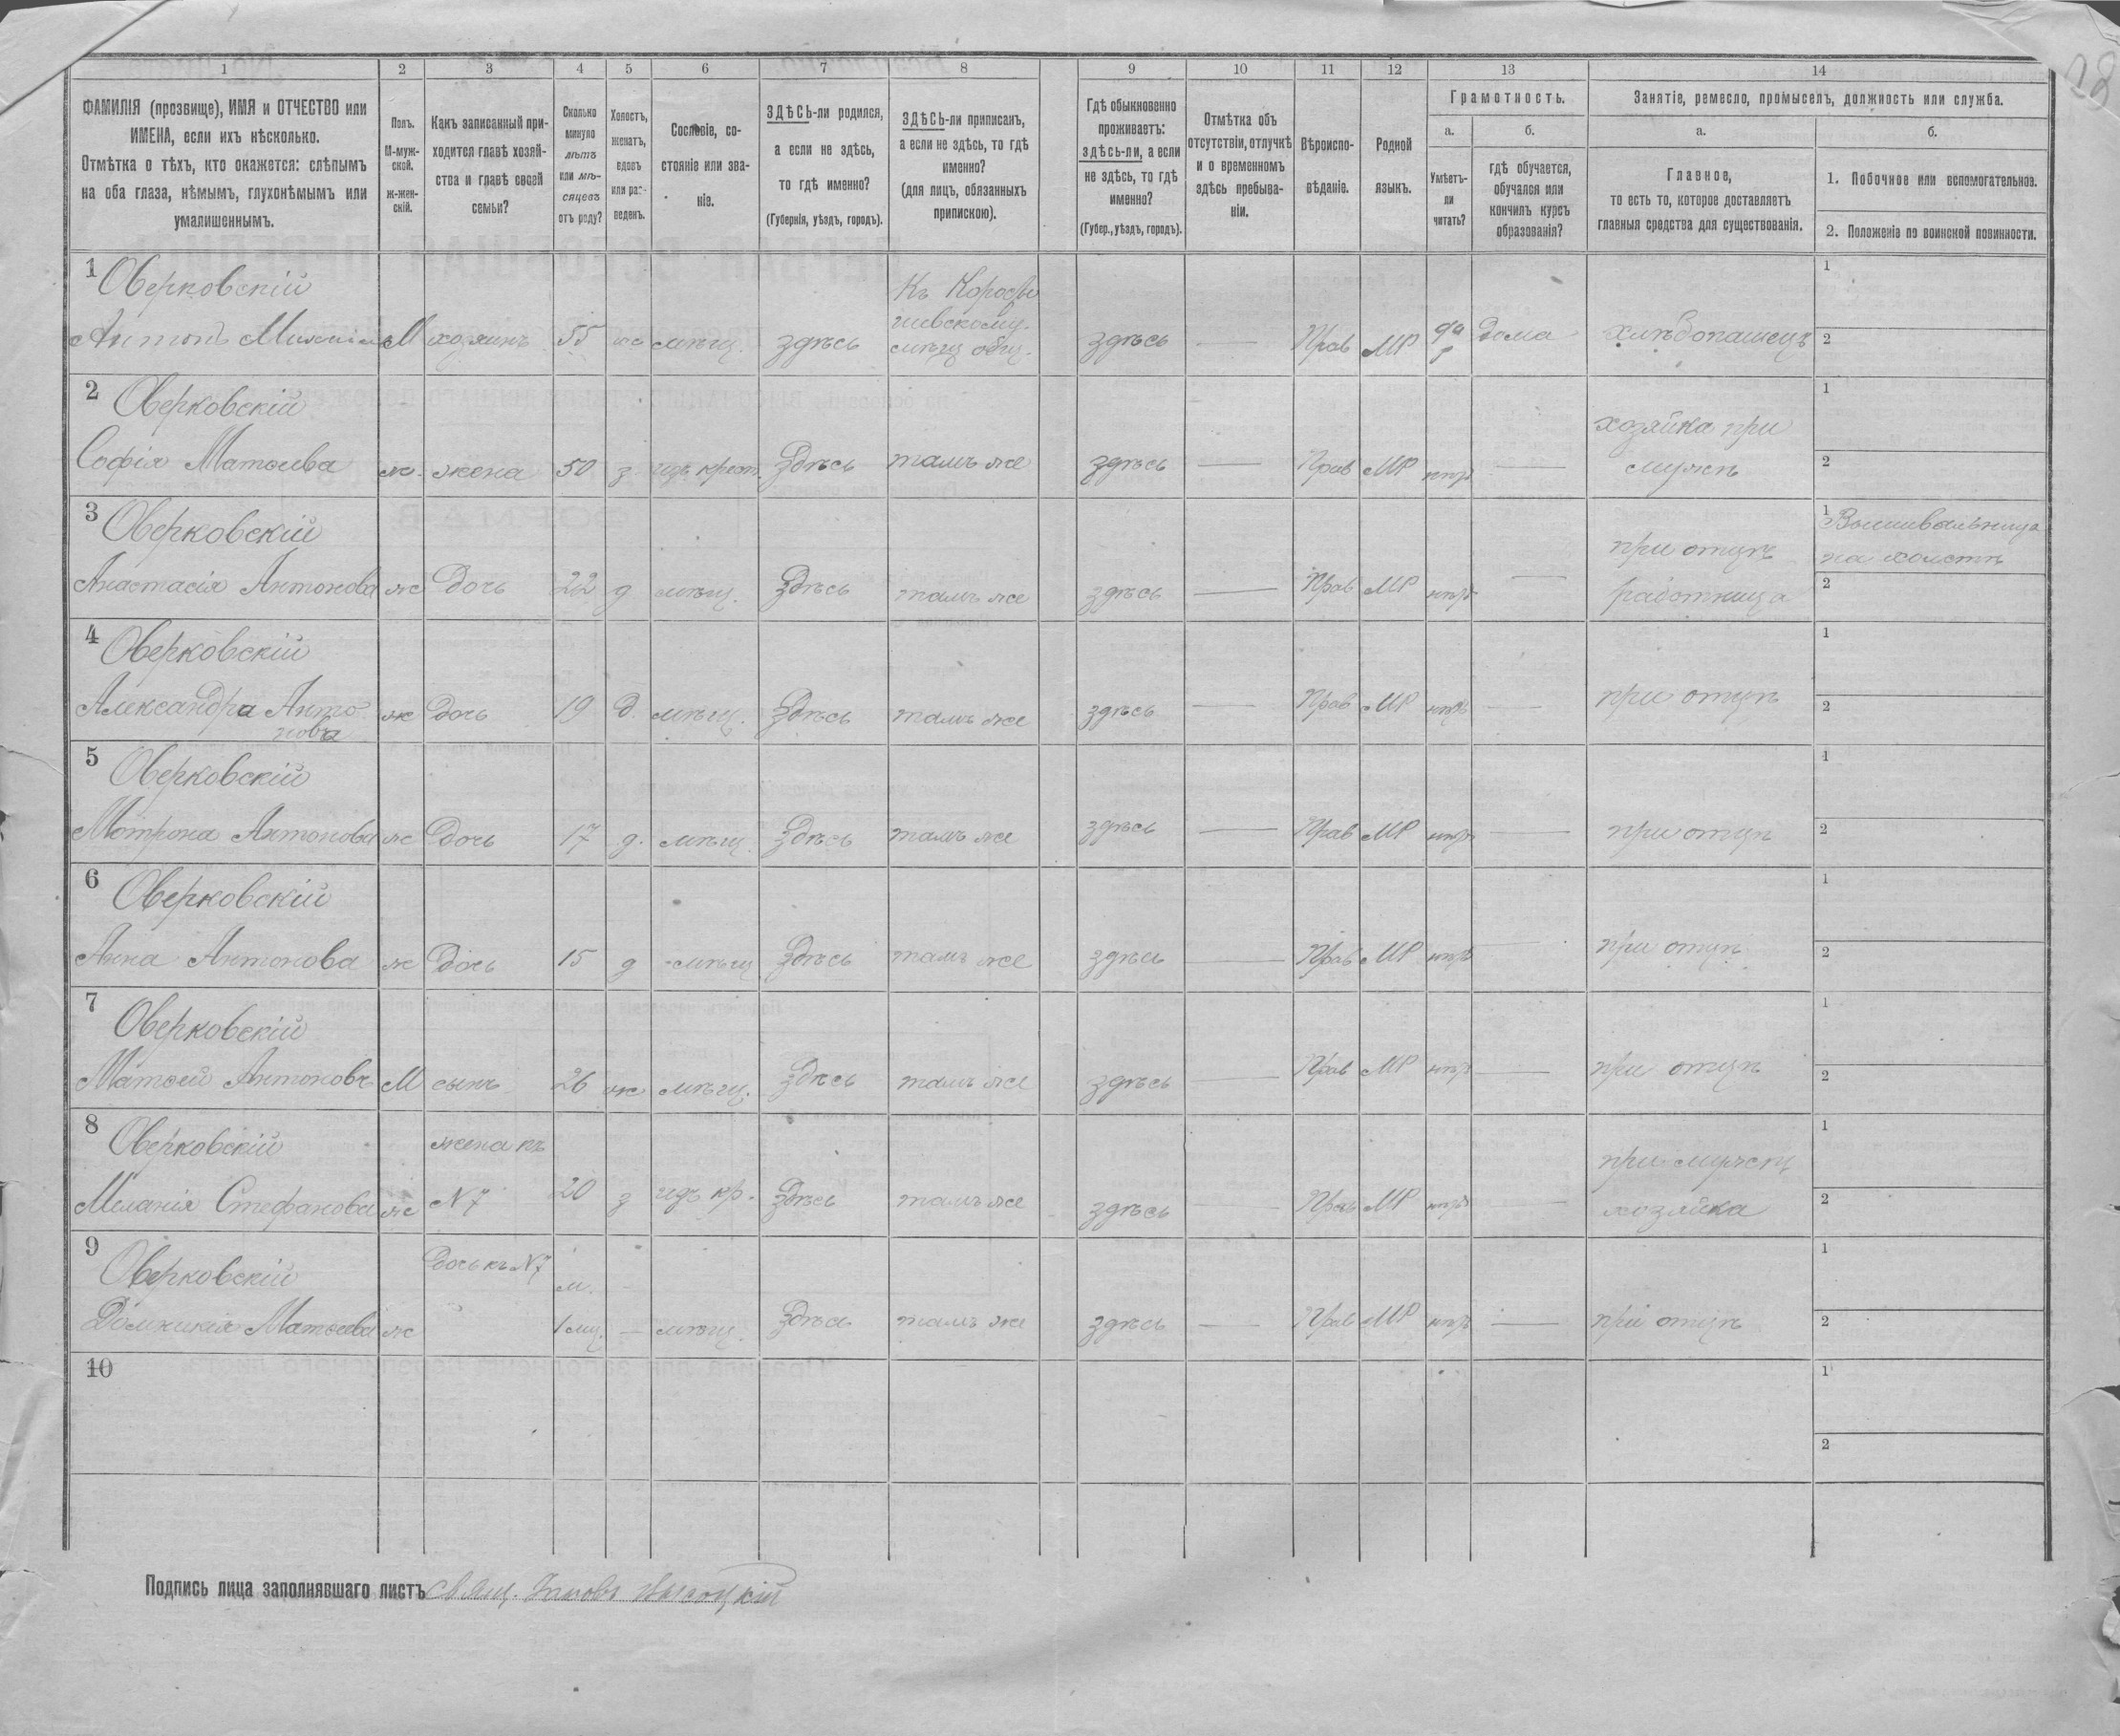 28
1 2 3 4 5 6 7 8 9 10 11 12 13 14
ФАМИЛІЯ (прозвище), ИМЯ и ОТЧЕСТВО или
ИМЕНА, если ихъ нѣсколько.
Отмѣтка о тѣхъ, кто окажется: слѣпымъ
на оба глаза, нѣмымъ, глухонѣмымъ или
умалишеннымъ.
Полъ.
М-муж-
ской.
ж-жен-
скій.
Какъ записанный при-
ходится главѣ хозяй-
ства и главѣ своей
семьи?
Сколько
минуло
лѣтъ
или мѣ-
сяцевъ
отъ роду?
Холостъ,
женатъ,
вдовъ
или раз-
веденъ.
Сословіе, со-
стояніе или зва-
ніе.
ЗДѢСЬ-ли родился,
а если не здѣсь,
то гдѣ именно?
(Губернія, уѣздъ, городъ).
ЗДѢСЬ-ли приписанъ,
а если не здѣсь, то гдѣ
именно?
(для лицъ, обязанныхъ
припискою).
Гдѣ обыкновенно
проживаетъ:
здѣсь-ли, а если
не здѣсь, то гдѣ
именно?
(Губер., уѣздъ, городъ).
Отмѣтка объ
отсутствіи, отлучкѣ
и о временномъ
здѣсь пребыва-
ніи.
Вѣроиспо-
вѣданіе.
Родной
языкъ.
Грамотность.
а.
Умѣетъ-
ли
читать?
б.
гдѣ обучается,
обучался или
кончилъ курсъ
образованія?
Занятіе, ремесло, промыселъ, должность или служба.
а.
Главное,
то есть то, которое доставляетъ
главныя средства для существованія.
б.
1. Побочное или вспомогательное.
2. Положеніе по воинской повинности.
1 Оверковскій
Антонъ М хозяинъ 55 мѣщ. здѣсь
Къ Коросты
шевскому
мѣщ общ.
здѣсь — Прав МР да дома хлѣбопашецъ
1
2
2 Оверковскій
Софія Матѳиева ж. жена 50 з. изъ крест. Здѣсь тамъ же здѣсь — Прав МР нѣтъ —
хозяйка при
мужѣ
1
2
3 Оверковскій
Анастасія Антонова ж дочь 22 д мѣщ. Здѣсь тамъ же здѣсь — Прав МР нѣтъ —
при отцѣ
работница
1 Вышивальница
на холстѣ
2
4 Оверковскій
Александра Анто
нова
ж дочь 19 д. мѣщ. Здѣсь тамъ же здѣсь — Прав МР нѣтъ — при отцѣ
1
2
5 Оверковскій
Мотрона Антонова ж дочь 17 д. мѣщ Здѣсь тамъ же здѣсь — Прав МР нѣтъ — при отцѣ
1
2
6 Оверковскій
Анна Антонова ж дочь 15 д мѣщ Здѣсь тамъ же здѣсь — Прав МР нѣтъ — при отцѣ
1
2
7 Оверковскій
Матѳей Антоновъ М сынъ 26 ж мѣщ. Здѣсь тамъ же здѣсь — Прав МР нѣтъ — при отцѣ
1
2
8 Оверковскій
Меланія Стефанова ж
жена къ
№7
20 з изъ кр. Здѣсь тамъ же здѣсь — Прав МР нѣтъ —
при мужѣ
хозяйка
1
2
9 Оверковскій
Домникія Матѳеева ж
дочь къ №7
м.
1 мц. — мѣщ. Здѣсь тамъ же здѣсь — Прав МР нѣтъ — при отцѣ
1
2
10
1
2
Подпись лица заполнявшаго листъ